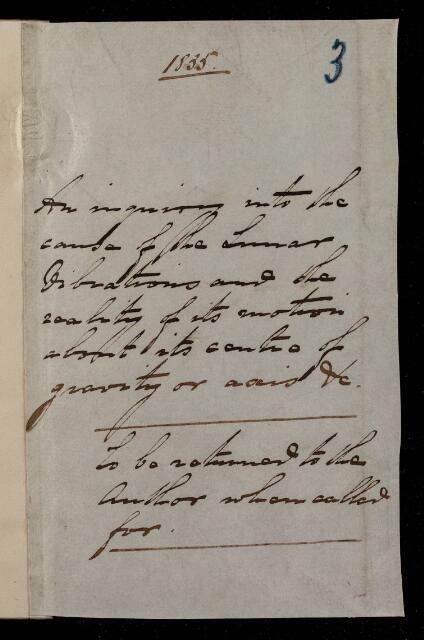 1835.
3
An inquiry into the
cause of the Lunar
Vibrations and the
reality of its motion
about its centre of
gravity or axis &c.
To be returned to the
Author when called
for.